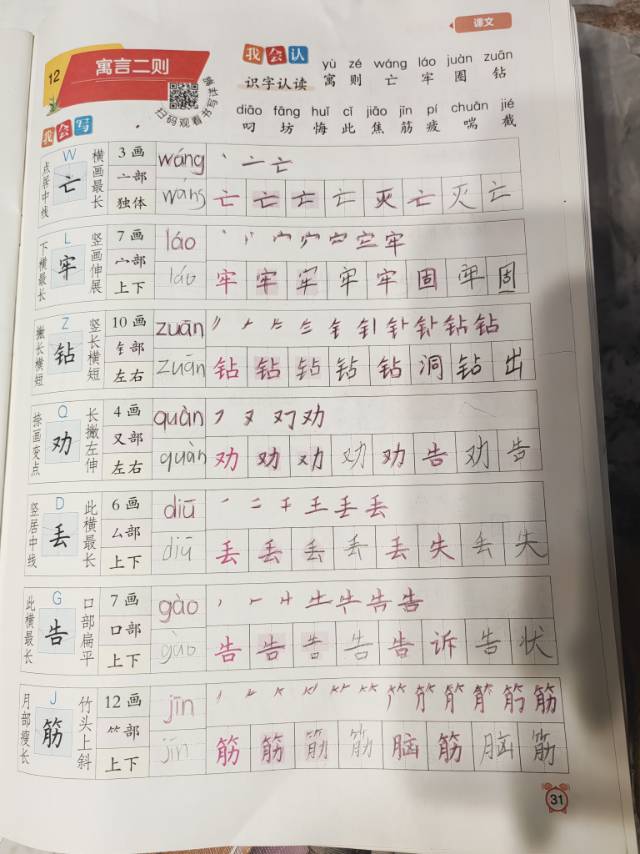 课文
12 寓言二则
扫码观看书写视频
我会认
识字认读
yù zé wáng láo juàn zuān
寓 则 亡 牢 圈 钻
diāo fāng huǐ cǐ jiāo jīn pí chuǎn jié
叼 坊 悔 此 焦 筋 疲 喘 截
我会写
点居中线 W 亡 横画最长 3画 亠部 独体 wáng 丶 亠 亡
wáng 亡 亡 亡 亡 灭 亡 灭 亡
下横最长 L 牢 竖画伸展 7画 宀部 上下 láo 牢
láo 牢 牢 牢 牢 牢 固 牢 固
撇长横短 Z 钻 竖长横短 10画 钅部 左右 zuān 钻 钻
zuān 钻 钻 钻 钻 钻 洞 钻 出
捺画变点 Q 劝 长撇左伸 4画 又部 左右 quàn ㇇ 又 劝
quàn 劝 劝 劝 劝 劝 告 劝 告
竖居中线 D 丢 此横最长 6画 厶部 上下 diū 一 二 千 王 丢 丢
diū 丢 丢 丢 丢 丢 失 丢 失
此横最长 G 告 口部扁平 7画 口部 上下 gào 告 告
gào 告 告 告 告 告 诉 告 状
月部瘦长 J 筋 竹头上斜 12画 ⺮部 上下 jīn 筋 筋
jīn 筋 筋 筋 筋 脑 筋 脑 筋
31